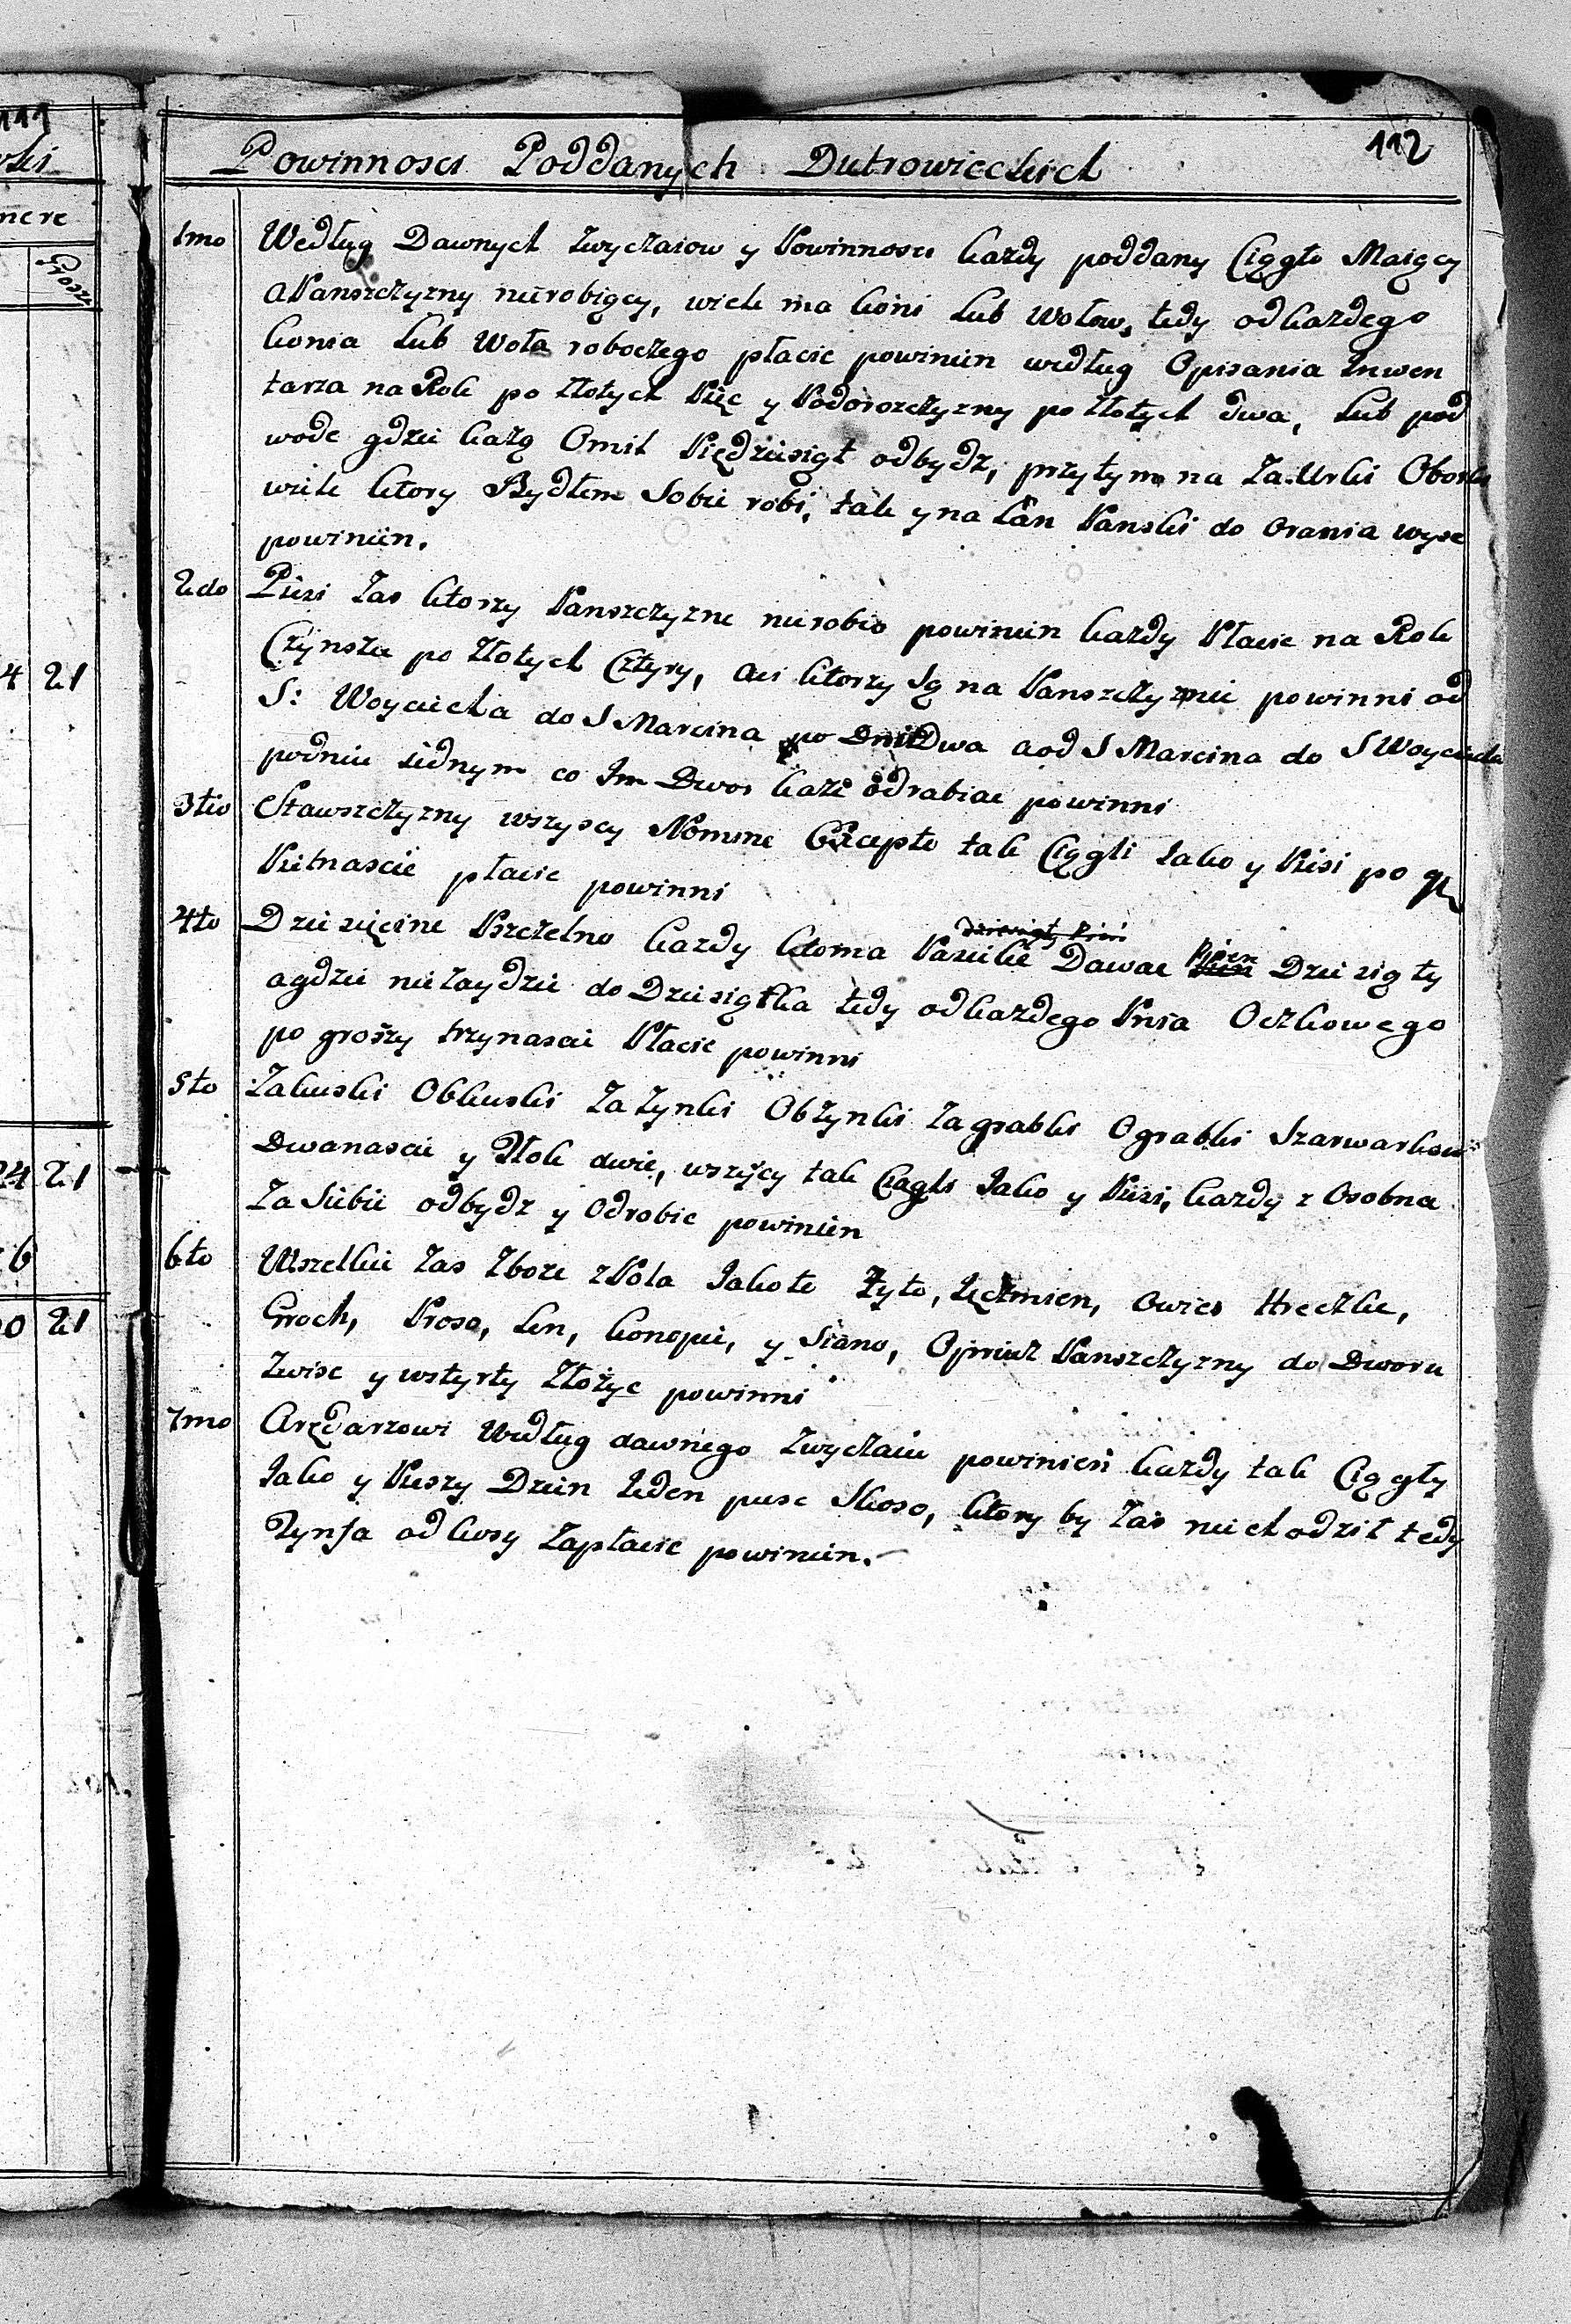 111
112
Powinnosci Poddanych Dutrowieckich
1mo Według Dawnych zwyczaiow y Powinnosci kazdy poddany Ciągło Maiący
a Panszczyzny nierobiący, wiele ma koni lub wołow, tedy od kazdego
konia lub Woła roboczego płacic powinien według Opisania Inwen
tarza na Rok po złotych Pięc y Podorozczyzny po złotych dwa, lub pod
wode gdzie każą O mil Pięedziesiąt odbydz, przytym na Za
wiele ktory Bydłem Sobie robi, tak y na łan Panski do Orania wysc
powinien.
2do Piesi Zas ktorzy Panszczyzne nierobio powinien kazdy Płacic na Rok
Czynszu po złotych Cztyry, a ci ktorzy Są na Panszczyznie powinni od
S: Woyciecha do S Marcina po Dni Dwa a od S Marcina do S Woyciecha
po dniu iednym co Im Dwor kaze odrabiac powinni
3tio Stawszczyzny wszyscy Nemine Excepto tak Ciągli Iako y Piesi po gr
Pietnascie płacic powinni
4to Dziesięcine Pszczelno kazdy kto ma Pasieke Dawac Pien Dziesiąty
a gdzie nie zaydzie do Dziesiątka tedy od kazdego Pnia Oczkowego
po groszy trzynascie Płacic powinni
5to Zakuski Obkuski Zażynki Obżynki Zagrabki Ograbki Szarwarkow
Dwanascie y Tłok dwie, wszyscy tak Ciągli Iako y Piesi, kazdy z Osobna
Za Siebie odbydz y Odrobic powinien
6to Wszelkie Zas Zboze z Pola Iakoto Zyto, Ięczmien, Owies Hreczke,
Groch, Proso, Len, konopie, y Siano, Oprucz Panszczyzny do Dworu
Zwisc y wstyrty Złożyc powinni
7mo Arędarzowi Według dawnego Zwyczaiu powinien kazdy tak Ciągły
Iako y Pieszy Dzien Ieden pusc Skoso, ktory by Zas nie chodził tedy
Tynfa od kosy Zapłacic powinien.
ski
nere
Groszy
4 21
24 21
6
0 21